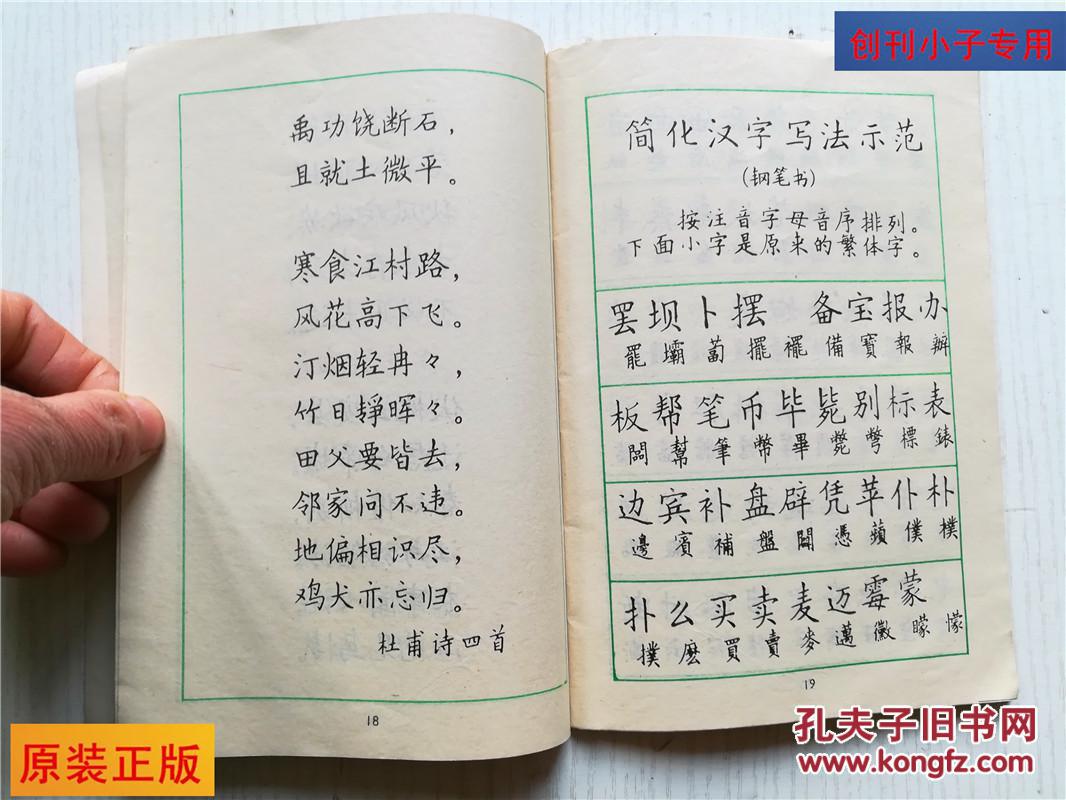 创刊小子专用
禹功饶断石，
且就土微平。
寒食江村路，
风花高下飞。
汀烟轻冉々，
竹日静晖々。
田父要皆去，
邻家问不违。
地偏相识尽，
鸡犬亦忘归。
杜甫诗四首
18
简化汉字写法示范
(钢笔书)
按注音字母音序排列。
下面小字是原来的繁体字。
罢坝卜摆 备宝报办
罷壩蔔擺襬備寶報辦
板帮笔币毕毙别标表
闆幫筆幣畢斃彆標錶
边宾补盘辟凭苹仆朴
邊賓補盤闢憑蘋僕樸
扑么买卖麦迈霉蒙
撲麽買賣麥邁黴矇懞
19
原装正版
孔夫子旧书网
www.kongfz.com